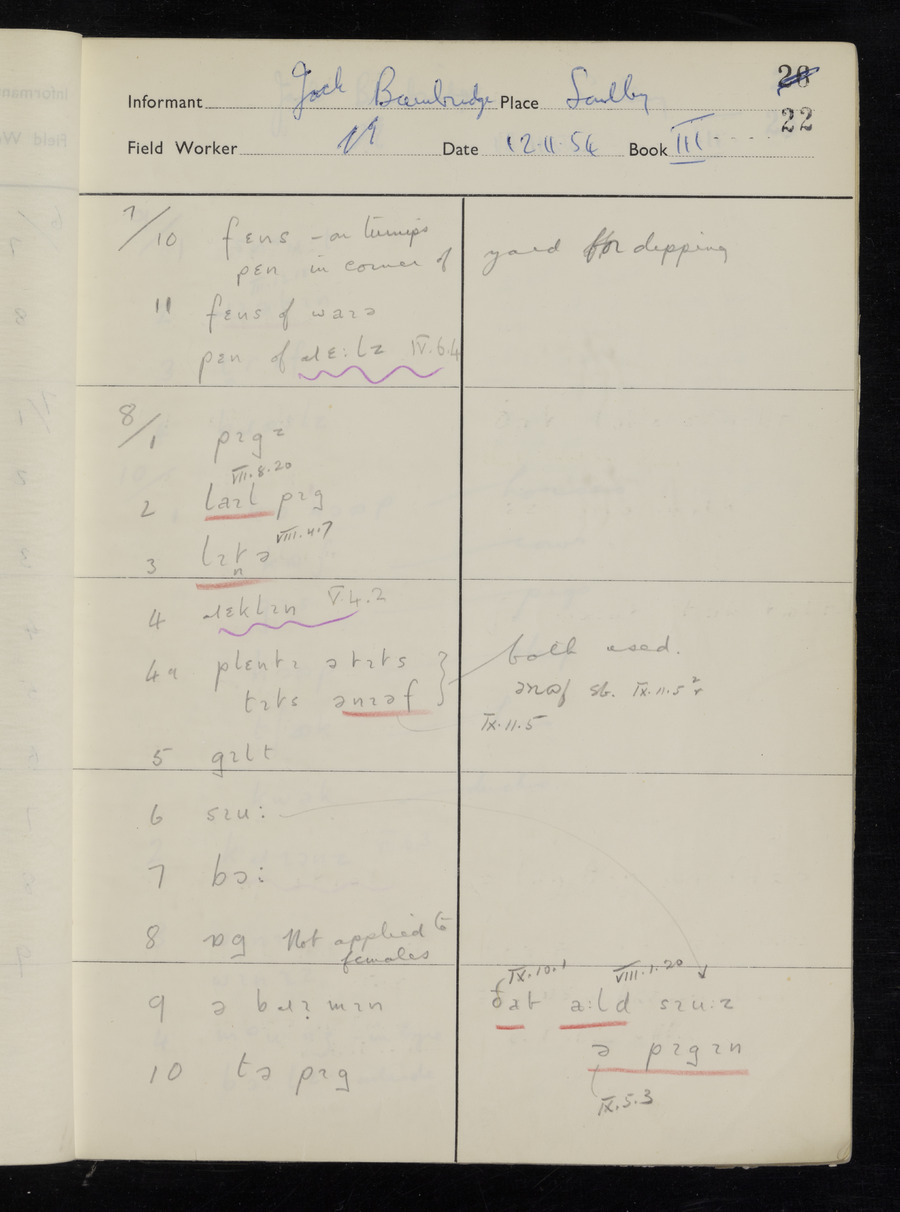 20
Informant Jack Bambridge Place Saulby
22
Field Worker Date 12·11·54 Book III
7/10 fɛns – on turnips
pɛn in corner of yard for dipping
11 fɛns of waɪə
pɛn of IV.6.4
8/1 pɪgz
VII.8.20
2 laɪl pɪg
VIII.4.7
3 lɪtə
n
4 V.4.2
4a plɛntɪ ə tɪts
tɪts ənɪəf
both used.
sb. IX.11.5
IX.11.5
5 gɪlt
6 sɪu:
7 bɔ:
8 ɒg Not applied to
females
IX.10.1 VIII.1.20
9 ə mɪn
ðat a:ld sɪu:z
ə pɪgɪn
10 tə pɪg
IX.5.3